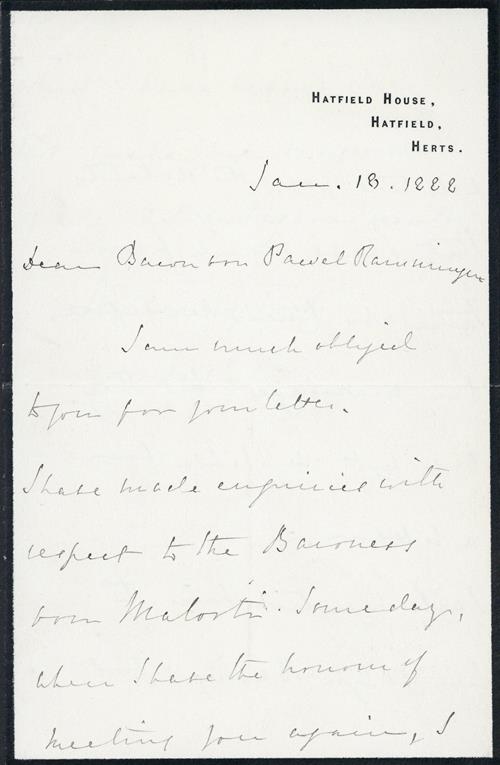 HATFIELD HOUSE,
HATFIELD,
HERTS.
Jan. 13. 1888
Dear Baron von Pawel Rammingen
I am much obliged
to you for your letter.
I have made enquiries with
respect to the Baroness
von Malortie. Some day,
when I have the honour of
meeting you again, I